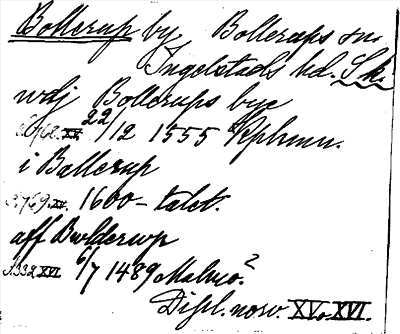 Bollerup by Bollerups sn.
Ingelstads hd. Sk.
wdj Bollerups bye
S. 762. XV. 22/12 1555 Kphmn.
i Ballerup
S. 769. XV. 1600-talet.
aff Bwlderwp
S. 332 XVI 6/7 1489 Malmö?
Dipl. norv. XV o. XVI.